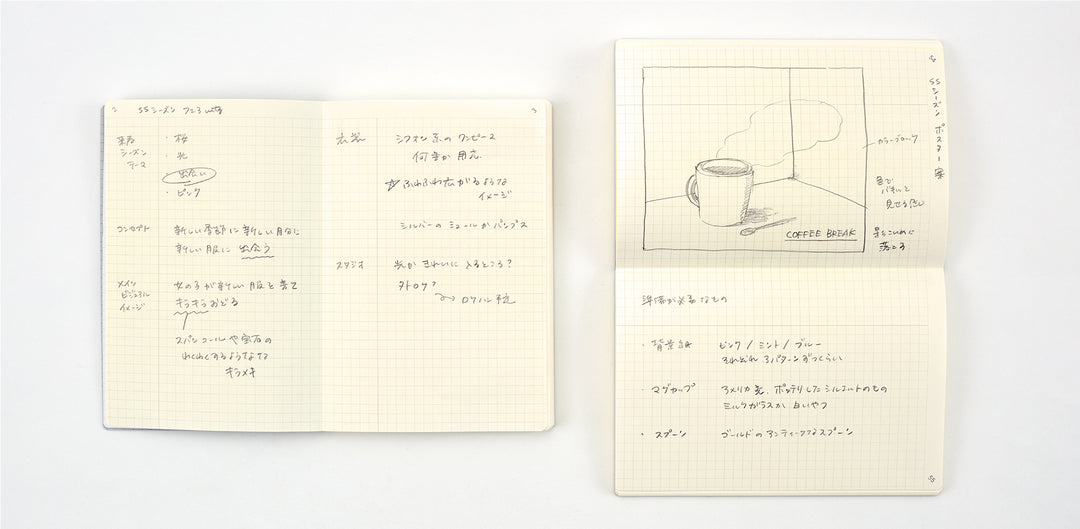 2
SSシーズン
春
シーズン
テーマ
・桜
・光
・出会い
・ピンク
コンセプト
新しい季節に新しい自分に
新しい服に出会う
メイン
ビジュアル
イメージ
女の子が新しい服を着て
キラキラおどる
スパンコールや宝石の
わくわくするような
キラメキ
3
衣装
シフォン系のワンピース
何着か用意
☆ふわふわ広がるような
イメージ
シルバーのミュールかパンプス
スタジオ
光がきれいに入るところ?
外ロケ?
ロケハン
SSシーズン ポスター案
カラーブロック
色で
パキッと
見せる
影もこいめに
落とす
COFFEE BREAK
準備が必要なもの
・背景紙
ピンク / ミント / ブルー
それぞれ 3パターンずつくらい
・マグカップ
アメリカ製、ポッテリしたシルエットのもの
ミルクガラスか白いやつ
・スプーン
ゴールドのアンティークなスプーン